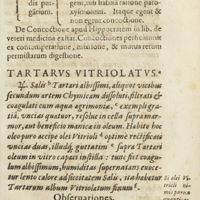 dis par-
gen
bent
gij. nus habita ratione paro-
xysmorum. Itaque egent &
non egent concoctione.
De Concoctione apud Hippocratem in lib. de
veteri medicina extāt Concoctiones perficiuntur
ex contemperatione, mixtione, & mutua rerum
permistarum digestione.
TARTARVS VITRIOLATVS.
℞. Salis Tartari albissimi, aliquot vicibus
secundum artem Chymicam dissoluti, filtrati &
coagulati cum aqua agrimoniæ, exempli gra-
tiâ, vncias quatuor, resolue in cella supra mar-
mor, aut beneficio manicæ in oleum. Habito hoc
oleo puro accipe olei Vitrioli optimè rectificati
vncias duas, illudque guttatim supra Tartari
oleum in vitro capaci instilla: tunc fiet coagu-
lum albissimum, humiditas supernatans exuce-
tur lento calore ad siccitatem Salis, & ita habetur
Tartarum album Vitriolatum finum
Obseruationes.
Si olei Vi-
trioli ni-
mis parũ